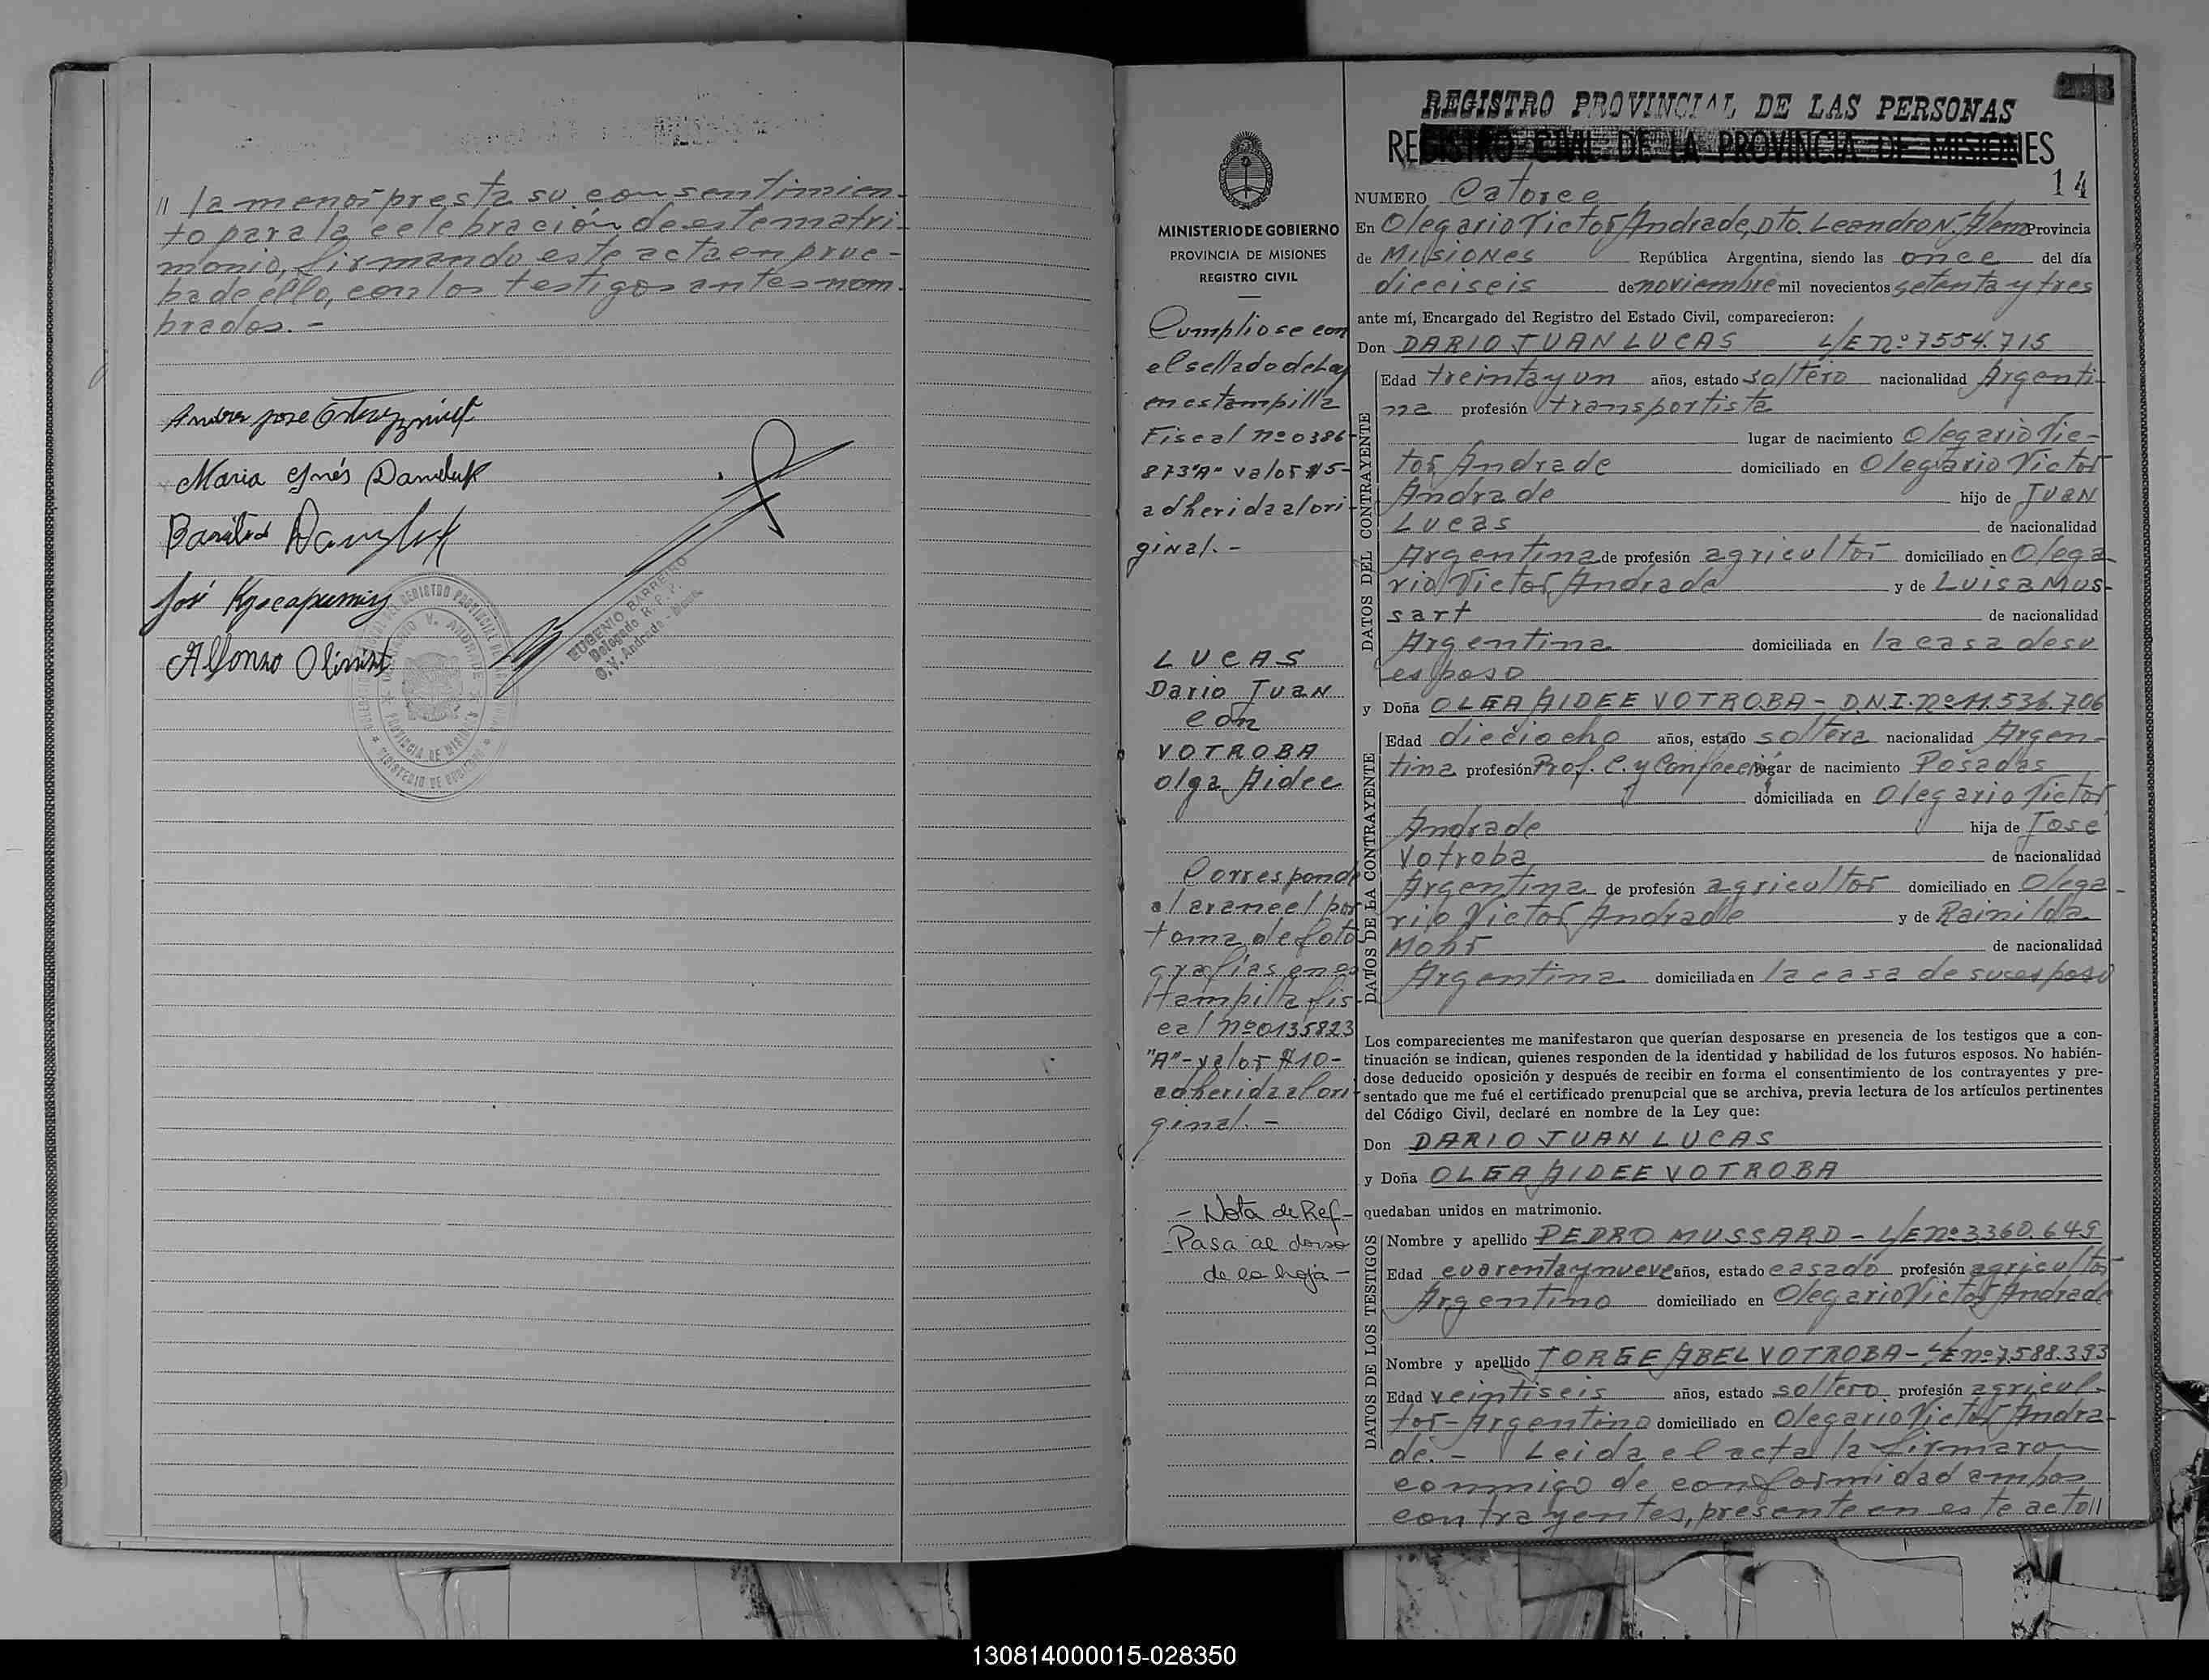 // la menor presta su consentimien-
to para la celebración de este matri-
monio, firmando este acta en prue-
ba de ello, con los testigos antes nom-
brados. -
Maria Inés Daneluk
José
Alfonso
EUGENIO BARREIRO
Delegado R. P. P.
O. V. Andrade - Mnes.
MINISTERIO DE GOBIERNO
PROVINCIA DE MISIONES
REGISTRO CIVIL
Cumpliose con
el sellado de Ley
en estampilla
Fiscal nº 0386-
873"A" valor $5-
adherida al ori-
ginal. -
LUCAS
Dario Juan
con
VOTROBA
Olga Aidee
Corresponde
al arancel por
toma de foto
grafías en es
tampilla fis-
cal nº 0135823
"A" - valor $10-
adherida al ori-
ginal. -
- Nota de Ref-
- Pasa al dorso
de la hoja -
REGISTRO PROVINCIAL DE LAS PERSONAS
REGISTRO CIVIL DE LA PROVINCIA DE MISIONES
14
NUMERO Catorce
En Olegario Victor Andrade, Dto. Leandro N. Alem Provincia
de Misiones República Argentina, siendo las once del día
dieciseis de noviembre mil novecientos setenta y tres
ante mí, Encargado del Registro del Estado Civil, comparecieron:
Don DARIO JUAN LUCAS L/E nº 7554.715
DATOS DEL CONTRAYENTE
Edad treinta y un años, estado soltero nacionalidad Argenti-
na profesión transportista
lugar de nacimiento Olegario Vic-
tor Andrade domiciliado en Olegario Victor
Andrade hijo de Juan
Lucas de nacionalidad
Argentina de profesión agricultor domiciliado en Olega-
rio Victor Andrade y de Luisa Mus-
sart de nacionalidad
Argentina domiciliada en la casa de su
esposo
y Doña OLGA AIDEE VOTROBA - D.N.I. nº 11.536.706
DATOS DE LA CONTRAYENTE
Edad dieciocho años, estado soltera nacionalidad Argen-
tina profesión Prof. C. y Confección lugar de nacimiento Posadas
domiciliada en Olegario Victor
Andrade hija de José
Votroba de nacionalidad
Argentina de profesión agricultor domiciliado en Olega-
rio Victor Andrade y de Rainilda
Mohr de nacionalidad
Argentina domiciliada en la casa de su esposo
Los comparecientes me manifestaron que querían desposarse en presencia de los testigos que a con-
tinuación se indican, quienes responden de la identidad y habilidad de los futuros esposos. No habién-
dose deducido oposición y después de recibir en forma el consentimiento de los contrayentes y pre-
sentado que me fué el certificado prenupcial que se archiva, previa lectura de los artículos pertinentes
del Código Civil, declaré en nombre de la Ley que:
Don DARIO JUAN LUCAS
y Doña OLGA AIDEE VOTROBA
quedaban unidos en matrimonio.
DATOS DE LOS TESTIGOS
Nombre y apellido PEDRO MUSSARD - L/E nº 3.360.649
Edad cuarenta y nueve años, estado casado profesión agricultor
Argentino domiciliado en Olegario Victor Andrade
Nombre y apellido JORGE ABEL VOTROBA - L/E nº 7.588.393
Edad veintiseis años, estado soltero profesión agricul-
tor - Argentino domiciliado en Olegario Victor Andra-
de. - Leida el acta la firmaron
conmigo de conformidad ambos
contrayentes, presente en este acto //
130814000015-028350